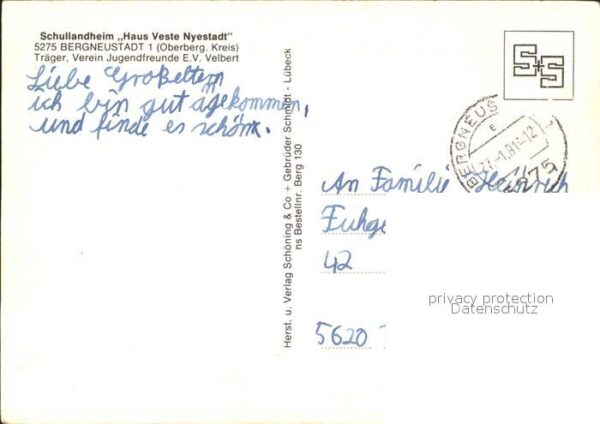 Schullandheim „Haus Veste Nyestadt"
5275 BERGNEUSTADT 1 (Oberberg. Kreis)
Träger, Verein Jugendfreunde E.V. Velbert
Liebe Großeltern
ich bin gut agekommen,
und finde es schön.
Herst. u. Verlag Schöning & Co + Gebrüder Schmidt - Lübeck
ns Bestellnr. Berg 130
S+S
BERGNEUS
27.-1.81-12
5275
An Familie Heinrich
Fuhge
42
5620
privacy protection
Datenschutz